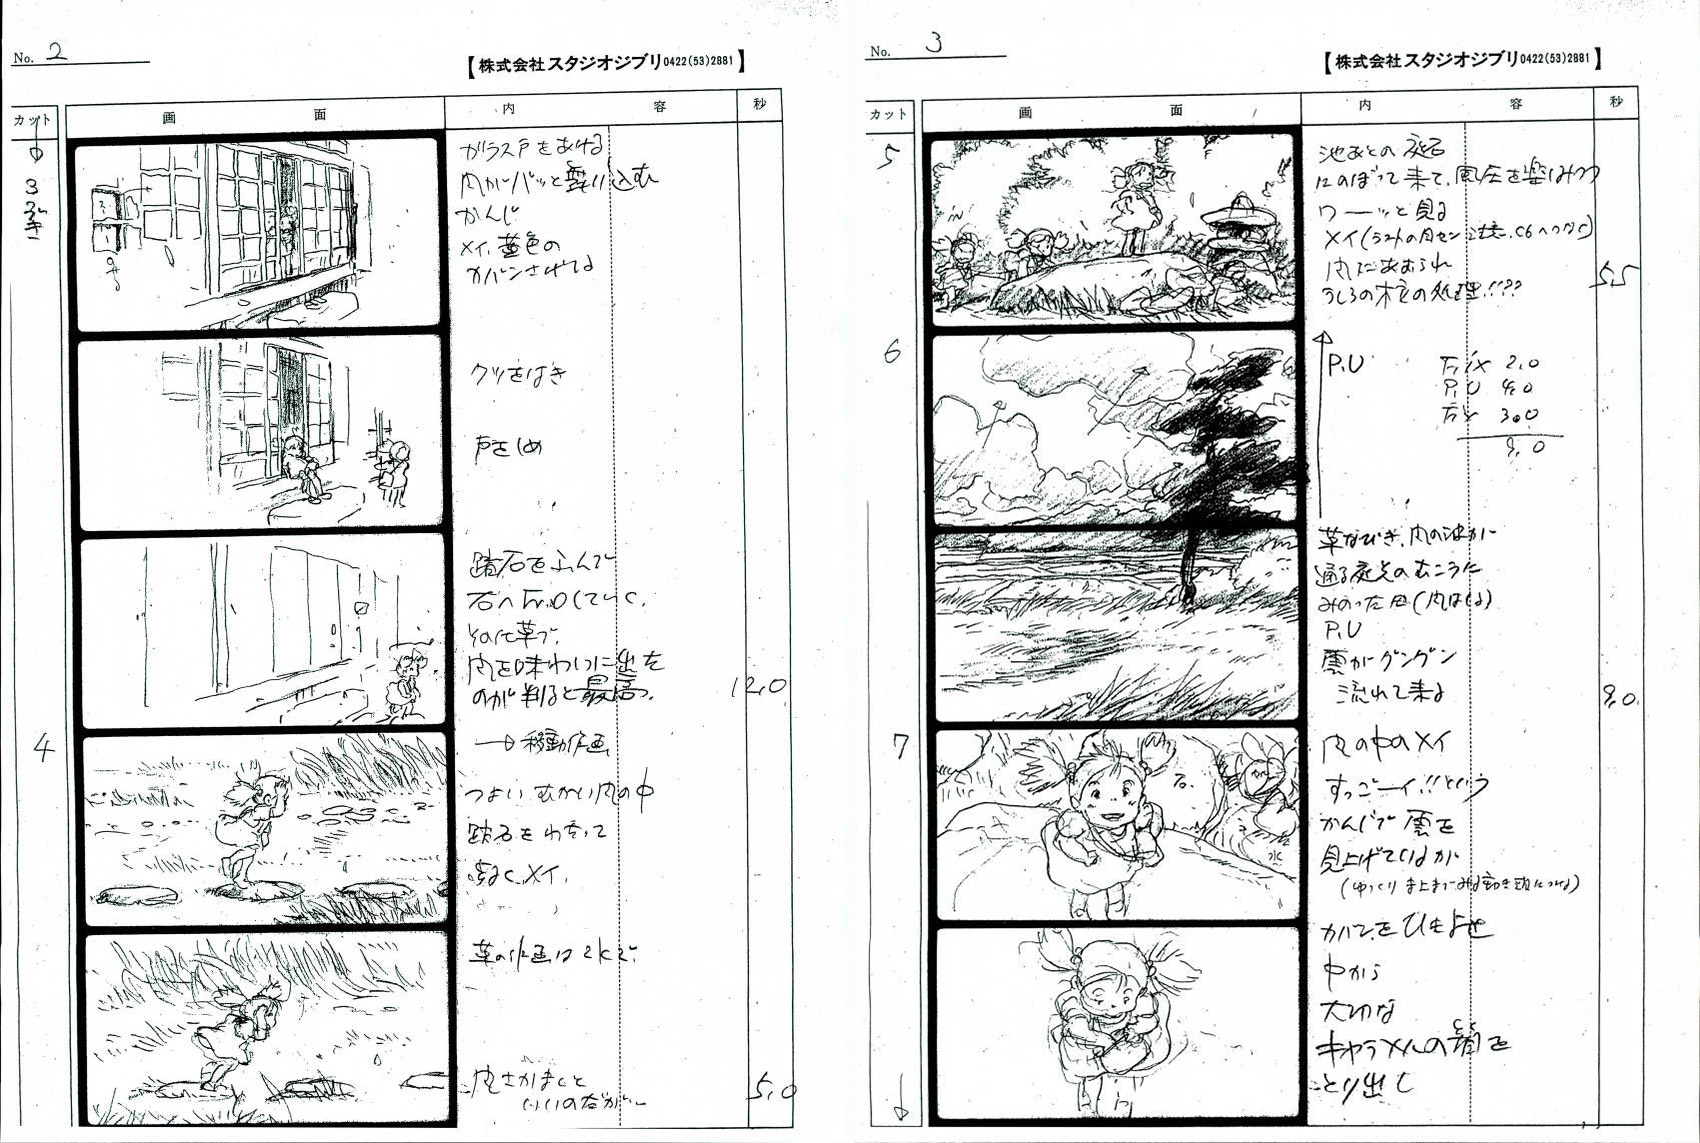 No. 2
【株式会社スタジオジブリ0422(53)2881】
カット 画 面 内 容 秒
3
つづき
ガラス戸をあける
風がパッと舞い込む
かんじ
メイ、黄色の
カバンさげてる
クツをはき
戸をしめ
踏石をふんで
石へFr.Oしていく。
風を味わいに出た
のが判ると最高。
12.0
4
→移動作画
つよいむかい風の中
踏石をわたって
メイ、
草の作画は2Kで
風さかまくと
いいのだが
5.0
No. 3
【株式会社スタジオジブリ0422(53)2881】
カット 画 面 内 容 秒
5
池あとの庭石
にのぼって来て、風圧を楽しみつつ
ワーッと見る
メイ(ラストの目セン注意、C6へつなぐ)
風にあおられ
うしろの木立の処理!!??
5.5
6
P.U
Fix 2.0
P.U 4.0
Fix 3.0
9.0
草なびき、風の波が
通る庭先のむこうに
みのった田(風はしる)
P.U
雲がグングン
流れて来る
9.0
7
風の中のメイ
すっごーイ!!という
かんじで雲を
見上げているが
(ゆっくり真上までみる動き頭につける)
石
水
カバンをひきよせ
中から
大切な
キャラメルの箱を
とり出し